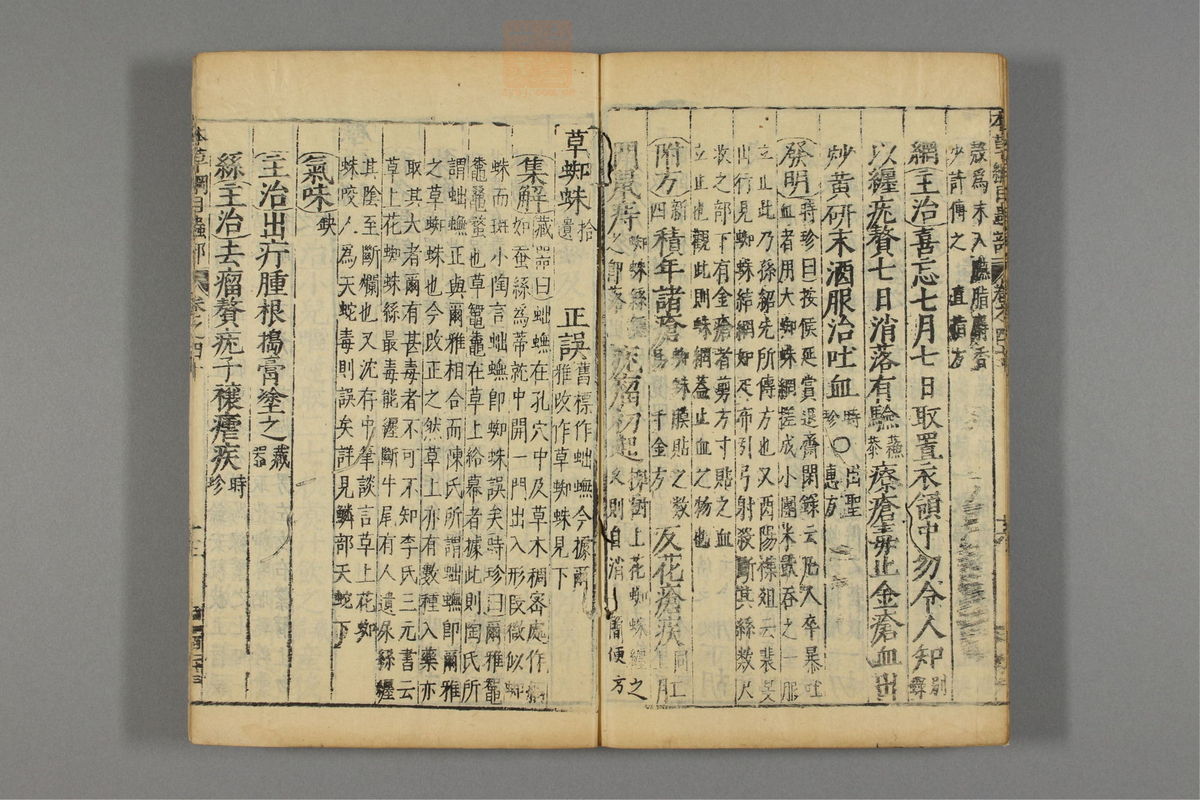 炙為末入臙脂麝香
少許傅之 直指方
網主治喜忘七月七日取置衣領中勿令人知別錄
以纏疣贅七日消落有驗蘇恭療瘡毒止金瘡血出
炒黃研末酒服治吐血時珍○出聖惠方
發明時珍曰按侯延賞退齋閑錄云凡人卒暴吐
血者用大蜘蛛網搓成小團米飲吞之一服
立止此乃孫紹先所傳方也又酉陽雜俎云裴旻
山行見蜘蛛結網如疋布引弓射殺斷其絲數尺
收之部下有金瘡者剪方寸貼之血
立止也觀此則蛛網蓋止血之物也
附方新四積年諸瘡蜘蛛膜貼之數易 千金方 反花瘡疾同上
疣瘤初起 樹上花蜘蛛纏之
久則自消 簡便方
草蜘蛛拾遺 正誤舊標作蚰蜒今據爾雅改作草蜘蛛見下
集解藏器曰蚰蜒在孔穴中及草木稠密處作網
如蚕絲為幕就中開一門出入形段微似蜘
蛛而斑小陶言蚰蜒即蜘蛛誤矣時珍曰爾雅鼅
鼄鼄蝥也草鼅鼄在草上絡幕者據此則陶氏所
謂蚰蜒正與爾雅相合而陳氏所謂蚰蜒即爾雅
之草蜘蛛也今改正之然草上亦有數種入藥亦
取其大者爾有甚毒者不可不知李氏三元書云
草上花蜘蛛絲最毒能纏斷牛尾有人遺尿絲纏
其陰至斷爛也又沈存中筆談言草上花蜘
蛛咬人為天蛇毒則誤矣詳見鱗部天蛇下
氣味缺
主治出疔腫根搗膏塗之藏器
絲主治去瘤贅疣子禳瘧疾時珍
本草綱目蟲部 卷之四十